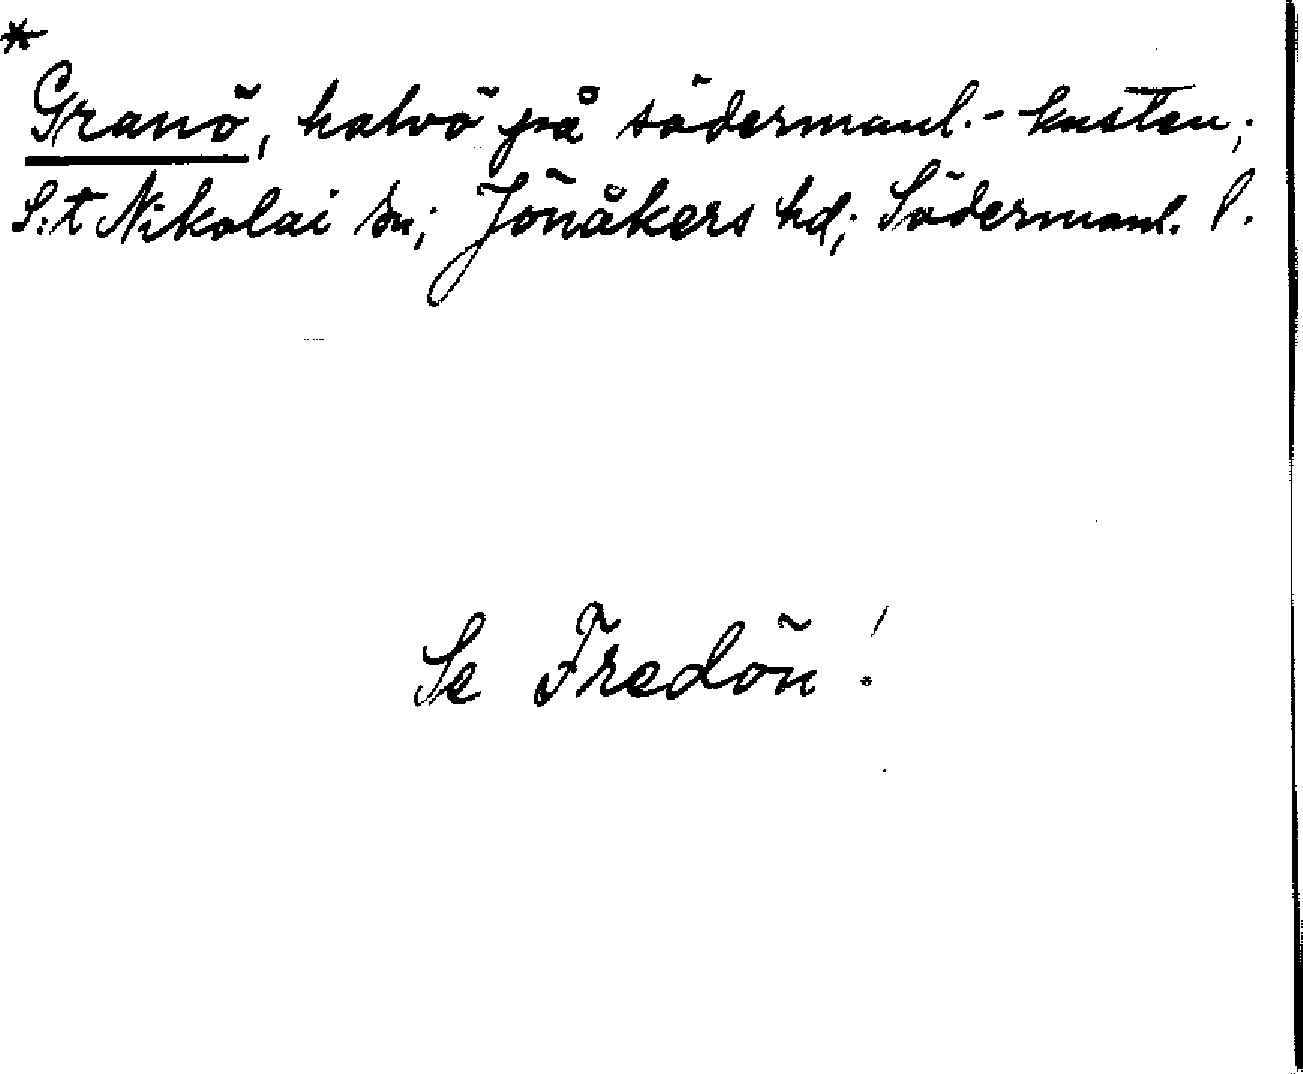 *
Granö, halvö på södermanl.-kusten;
S:t Nikolai sn; Jönåkers hd; Södermanl. l.
Se Fredön!